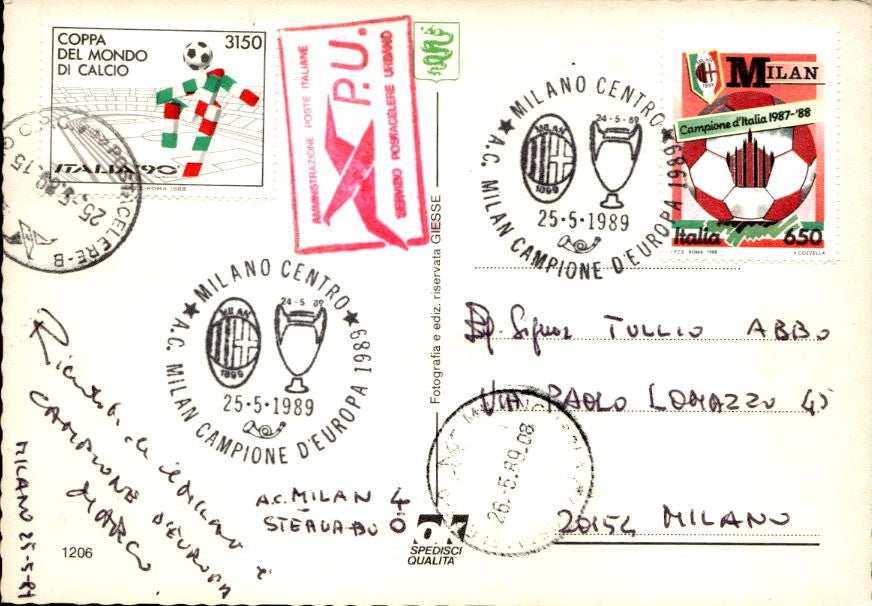 COPPA
DEL MONDO
DI CALCIO
3150
ITALIA '90
I.P.Z.S. ROMA 1988
25.5.89.15
AMMINISTRAZIONE POSTE ITALIANE
P.U.
SERVIZIO POSTACELERE URBANO
MILANO CENTRO
24-5-89
MILAN
1899
25-5-1989
A.C. MILAN CAMPIONE D'EUROPA 1989
MILAN
MILAN
1899
Campione d'Italia 1987-'88
Italia
650
I.P.Z.S. ROMA 1988
V. COZZELLA
MILANO CENTRO
24-5-89
MILAN
1899
25-5-1989
A.C. MILAN CAMPIONE D'EUROPA 1989
il Milan
CAMPIONE D'EUROPA
MARCO
MILANO 25-5-89
A.C. MILAN 4
STEAUA BU 0
1206
Fotografia e ediz. riservata GIESSE
OK
SPEDISCI
QUALITA'
Signor TULLIO ABBO
VIA PAOLO LOMAZZO 45
26.5.89.08
20154 MILANO